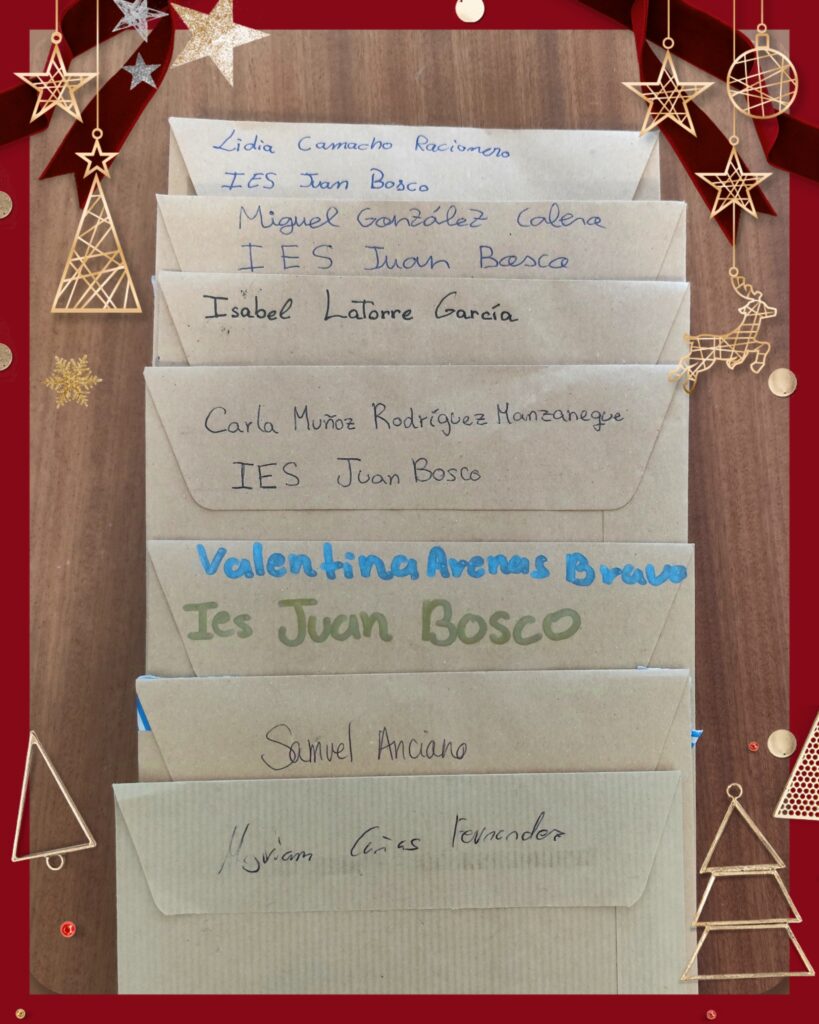 Lidia Camacho Racionero
IES Juan Bosco
Miguel González Calero
IES Juan Bosco
Isabel LaTorre García
Carla Muñoz Rodríguez Manzaneque
IES Juan Bosco
Valentina Arenas Bravo
Ies Juan Bosco
Samuel Anciano
Myriam Cañas Fernandez